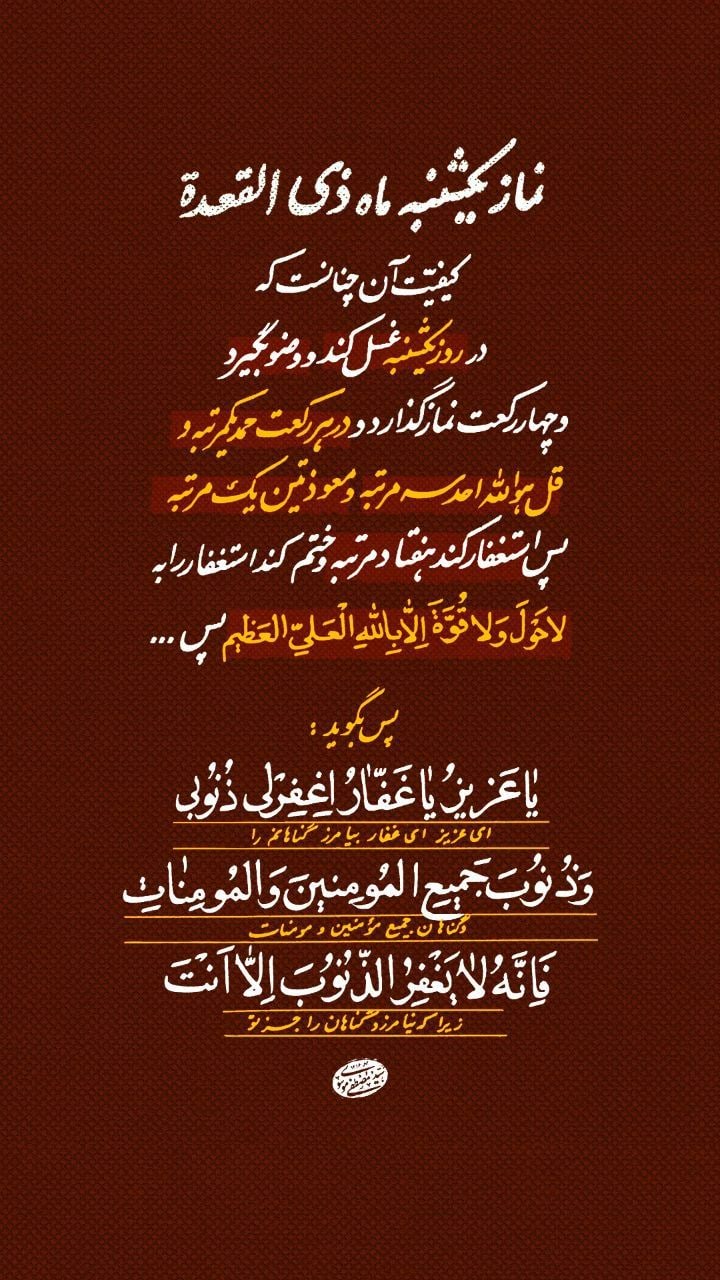 نماز یکشنبه ماه ذی القعدة
کیفیّت آن چنانست که
در روز یکشنبه غسل کند و وضو بگیرد
و چهار رکعت نماز گذارد و در هر رکعت حمد یکمرتبه و
قل هو الله احد سه مرتبه و معوذتین یک مرتبه
پس استغفار کند هفتاد مرتبه و ختم کند استغفار را به
لا حَوْلَ وَلا قُوَّةَ اِلّا بِاللهِ الْعَلیِّ العَظیمِ پس ...
پس بگوید :
یٰا عَزیزُ یٰا غَفّٰارُ اِغْفِرْلی ذُنُوبی
ای عزیز ای غفار بیامرز گناهانم را
وَذُنُوبَ جَمیعِ المُومِنینَ وَالمُومِنٰاتِ
وگناهان جمیع مؤمنین و مومنات
فَاِنَّهُ لاٰ یَغْفِرُ الذُّنُوبَ اِلاّٰ اَنْتَ
زیرا که نیامرزد گناهان را جز تو